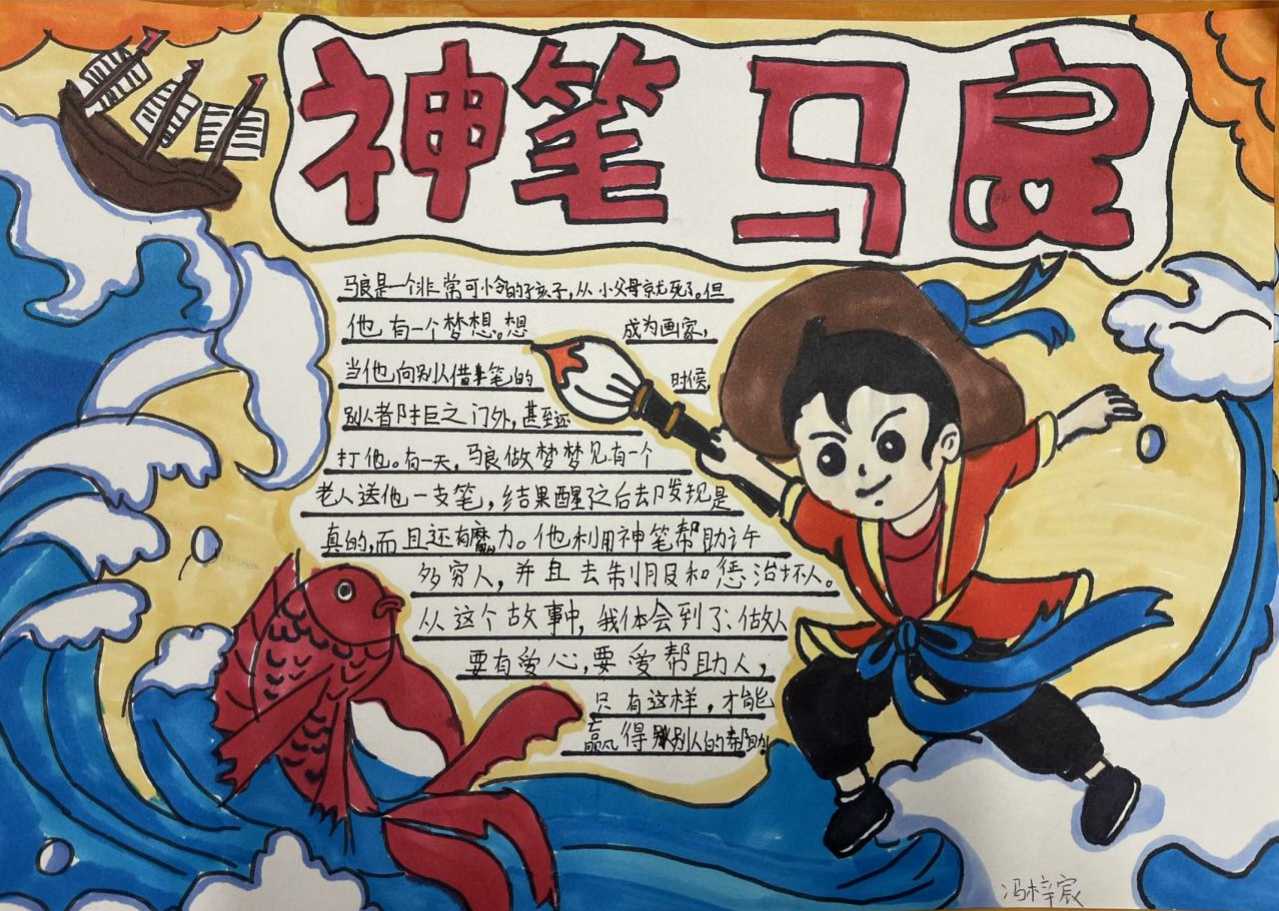 神笔马良
马良是一个非常可小令的孩子，从小父母京尤死了。但
他有一个梦想。想 成为画家，
当他向别人借笔的 时候，
别人者阝拒之门外，甚至还
打他。有一天，马良做梦梦见有一个
老人送他一支笔，结果醒了之后去发现是
真的，而且还有魔力。他利用神笔帮助许
多穷人，并且去制服和惩治坏人。
从这个故事中，我体会到了、做人
要有爱心，要爱帮助人，
只有这样，才能
赢得别人的帮助
冯梓宸